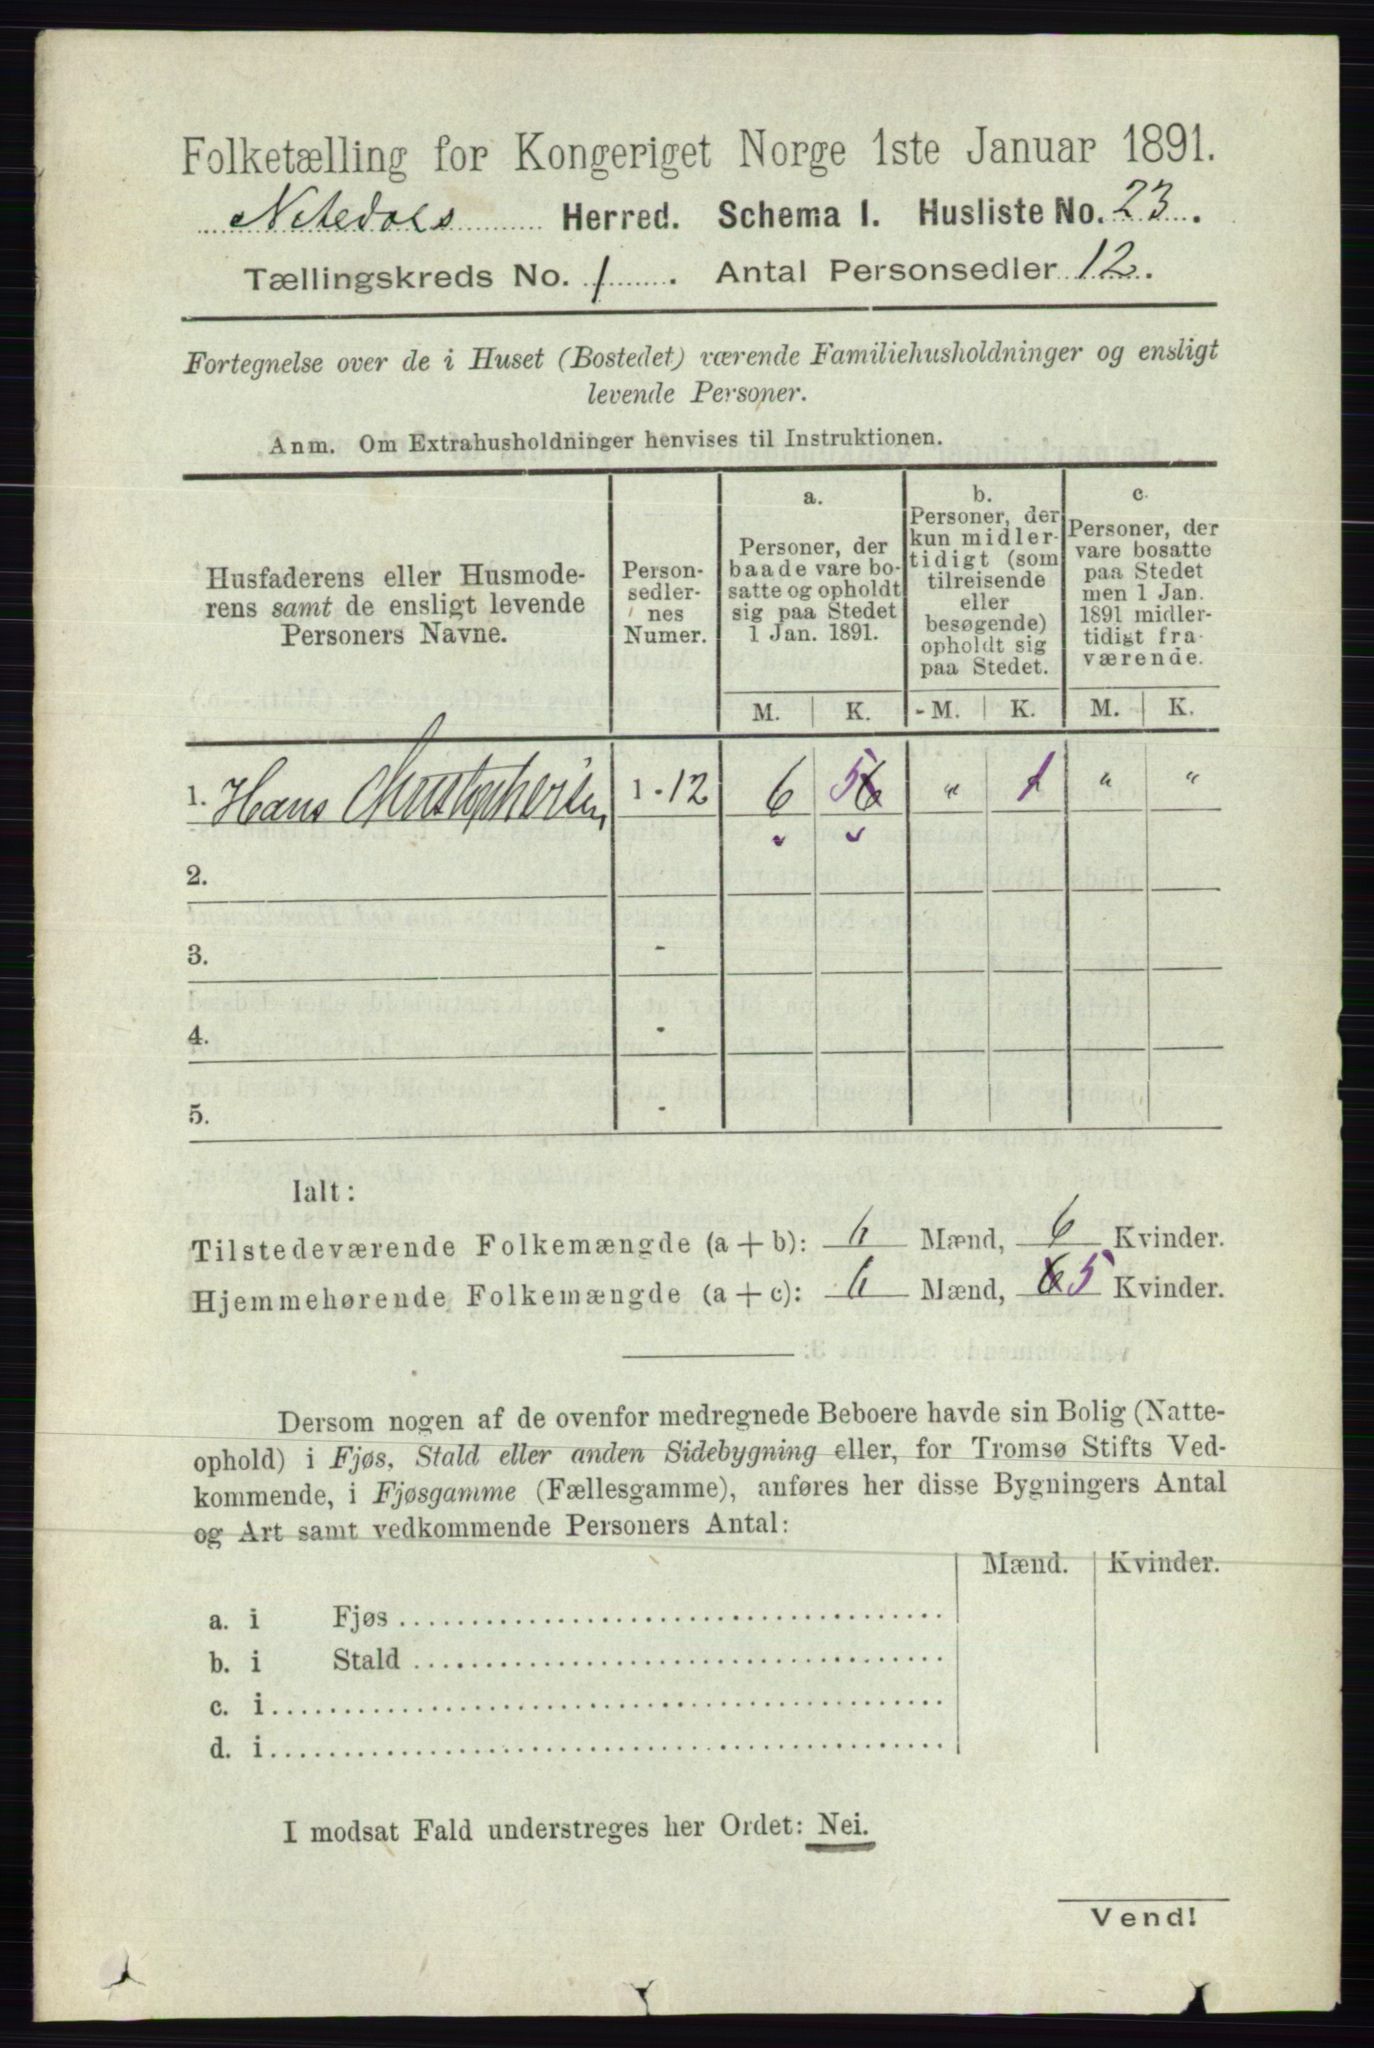 Folketælling for Kongeriget Norge 1ste Januar 1891.
Nitedals Herred. Schema I. Husliste No. 23.
Tællingskreds No. 1. Antal Personsedler 12.
Fortegnelse over de i Huset (Bostedet) værende Familiehusholdninger og ensligt
levende Personer.
Anm. Om Extrahusholdninger henvises til Instruktionen.
Husfaderens eller Husmode-
rens samt de ensligt levende
Personers Navne.
Person-
sedler-
nes
Numer.
a.
Personer, der
baade vare bo-
satte og opholdt
sig paa Stedet
1 Jan. 1891.
b.
Personer, der
kun midler-
tidigt (som
tilreisende
eller
besøgende)
opholdt sig
paa Stedet.
c.
Personer, der
vare bosatte
paa Stedet
men 1 Jan.
1891 midler-
tidigt fra-
værende.
M. K. M. K. M. K.
1. Hans Christophersen 1 - 12 6 5 6 " 1 " "
2.
3. -
4. -
5. -
Ialt:
Tilstedeværende Folkemængde (a + b): 6 Mænd, 6 Kvinder.
Hjemmehørende Folkemængde (a + c): 6 Mænd, 6 5 Kvinder.
Dersom nogen af de ovenfor medregnede Beboere havde sin Bolig (Natte-
ophold) i Fjøs, Stald eller anden Sidebygning eller, for Tromsø Stifts Ved-
kommende, i Fjøsgamme (Fællesgamme), anføres her disse Bygningers Antal
og Art samt vedkommende Personers Antal:
Mænd. Kvinder.
a. i Fjøs
b. i Stald
c. i
d. i
I modsat Fald understreges her Ordet: Nei.
Vend!